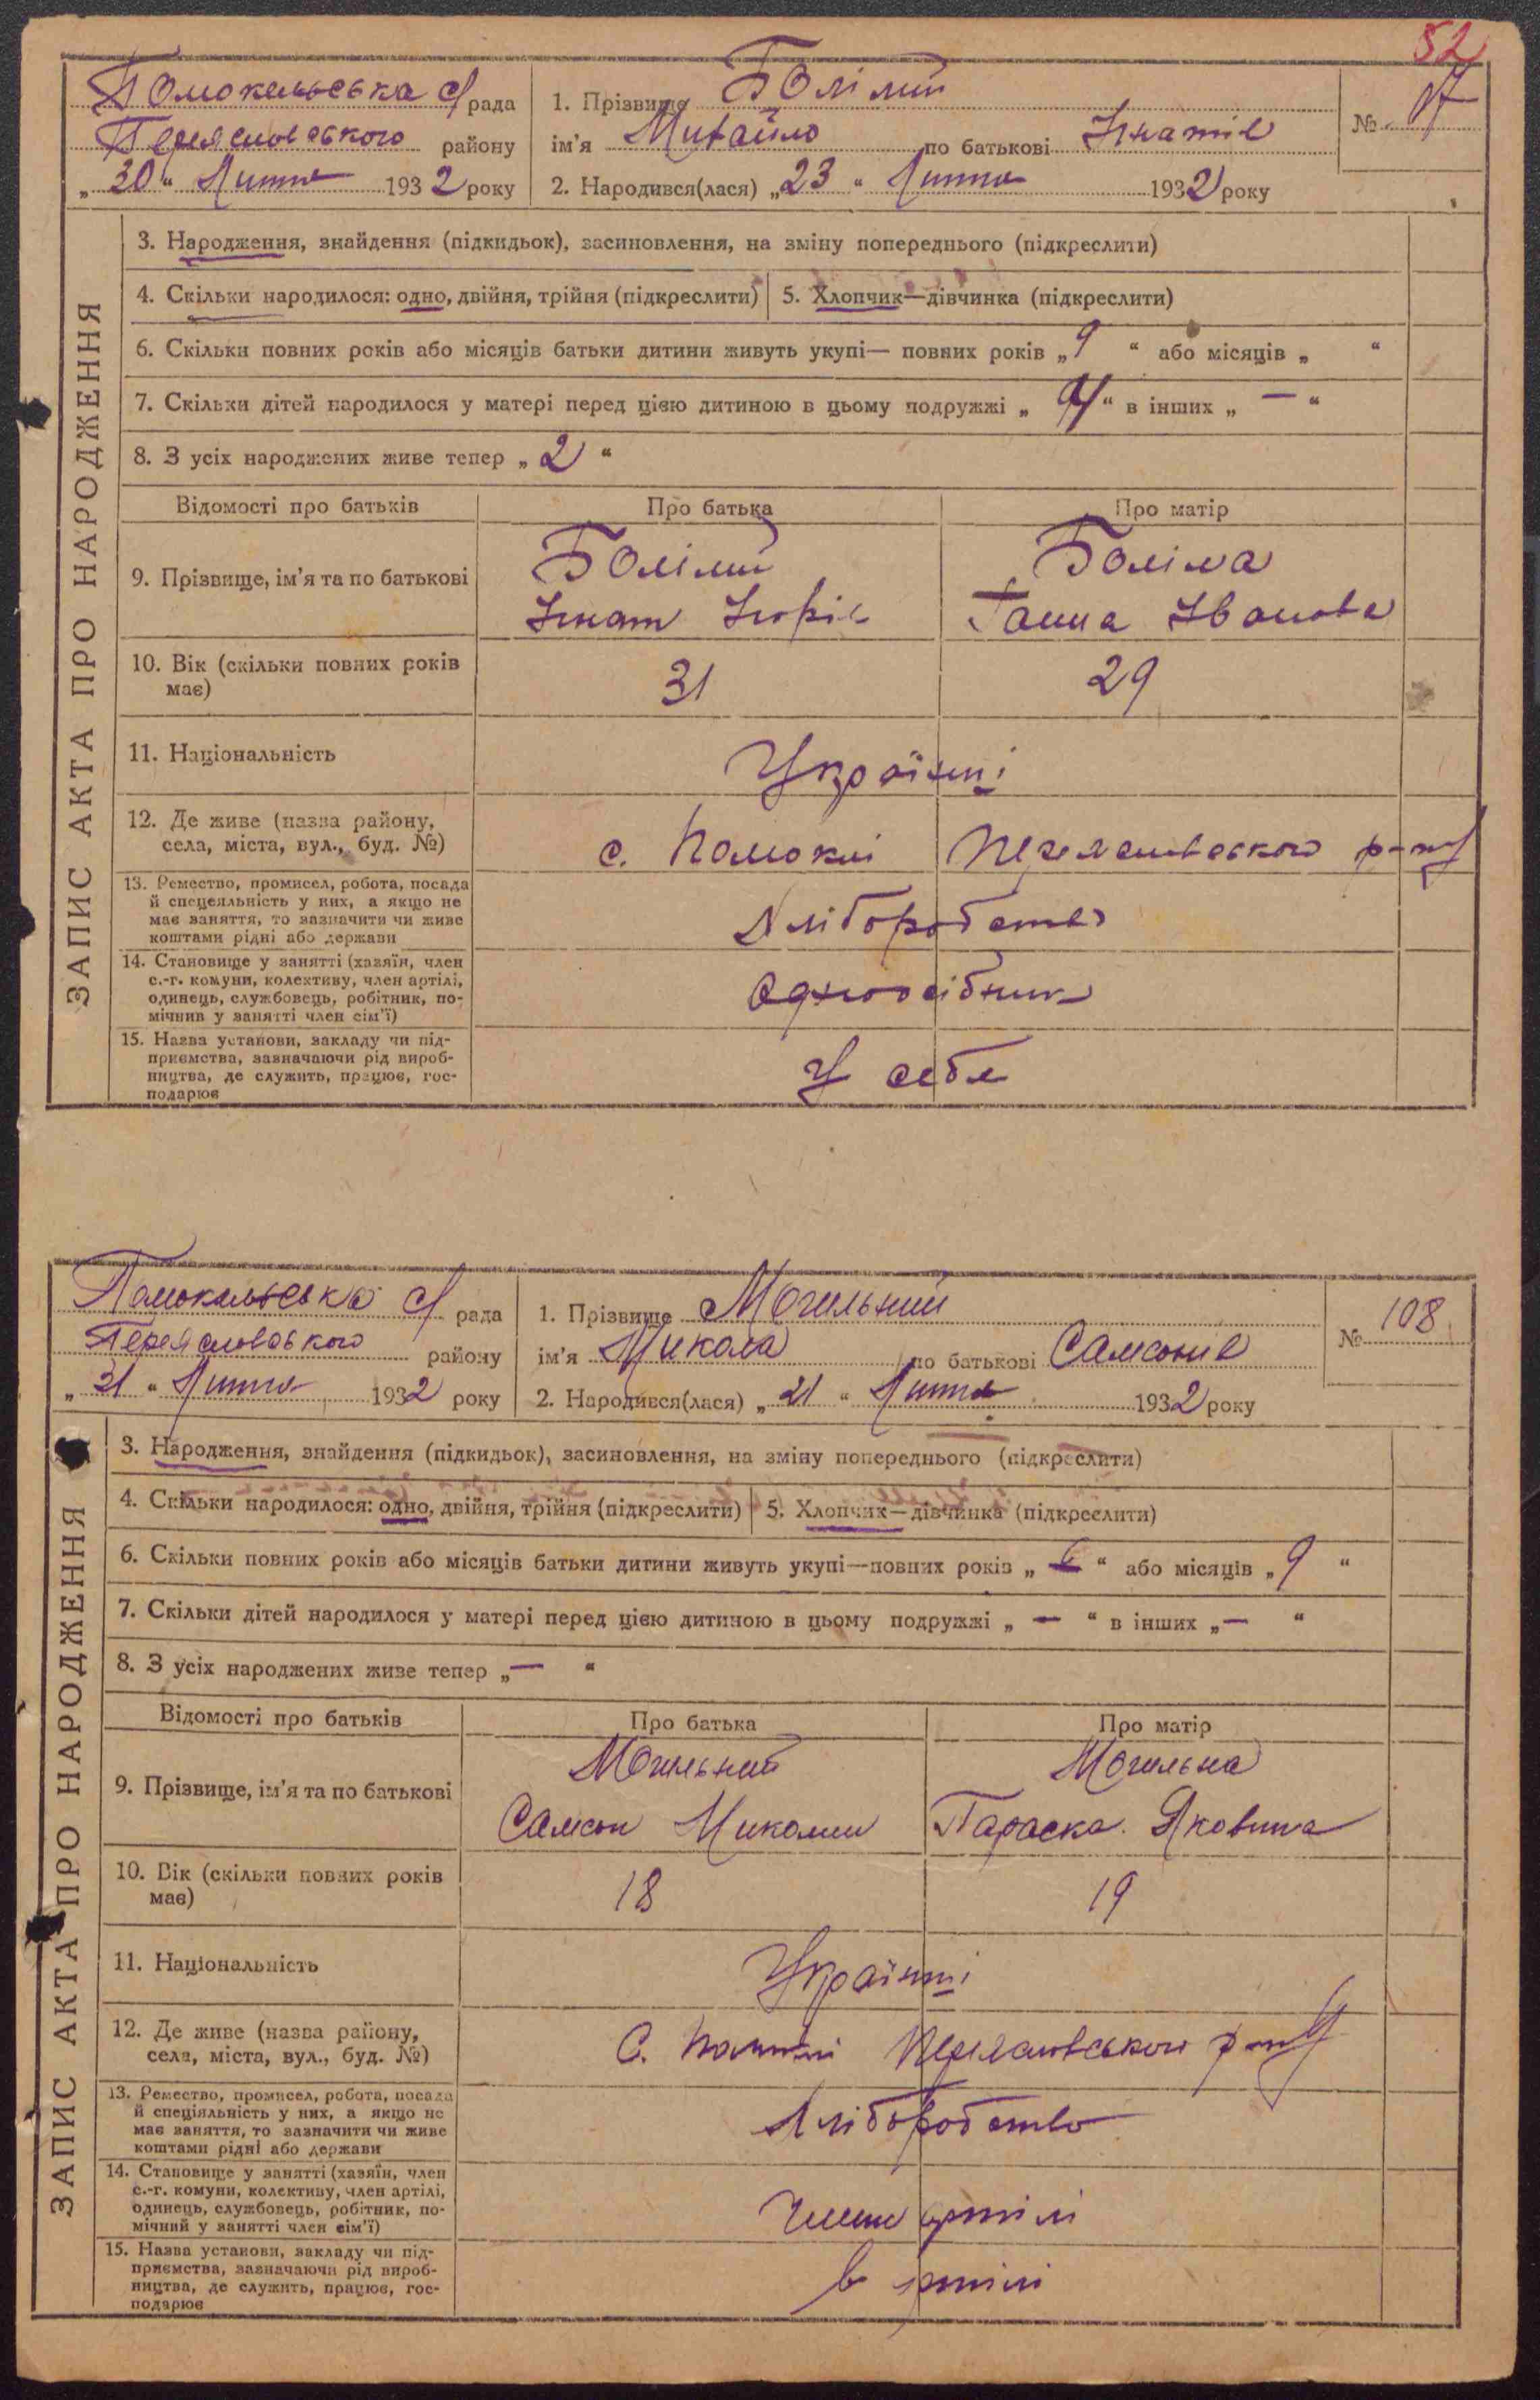 52
Помокельська с/рада
Переяславського району
„30“ Липня 1932 року
1. Прізвище Болілий
ім’я Михайло по батькові Ігнатів
2. Народився(лася) „23“ Липня 1932 року
№
3. Народження, знайдення (підкидьок), засиновлення, на зміну попереднього (підкреслити)
4. Скільки народилося: одно, двійня, трійня (підкреслити)
5. Хлопчик—дівчинка (підкреслити)
6. Скільки повних років або місяців батьки дитини живуть укупі— повних років „9“ або місяців „ “
7. Скільки дітей народилося у матері перед цією дитиною в цьому подружжі „ “ в інших „—“
8. З усіх народжених живе тепер „2“
Відомості про батьків
Про батька
Про матір
9. Прізвище, ім’я та по батькові
Болілий
Ігнат
Боліла
Ганна Іванова
10. Вік (скільки повних років
має)
31
29
11. Національність
Українці
12. Де живе (назва району,
села, міста, вул., буд. №)
с. Помоклі Переяславського р-ну
13. Ремество, промисел, робота, посада
й спецеяльність у них, а якщо не
має заняття, то зазначити чи живе
коштами рідні або держави
Хліборобство
14. Становище у занятті (хазяїн, член
с.-г. комуни, колективу, член артілі,
одинець, службовець, робітник, по-
мічнив у занятті член сім’ї)
Одноосібник
15. Назва установи, закладу чи під-
приємства, зазначаючи рід вироб-
ництва, де служить, працює, гос-
подарює
У себе
ЗАПИС АКТА ПРО НАРОДЖЕННЯ
Помокельська с/рада
Переяславського району
„31“ Липня 1932 року
1. Прізвище Могильний
ім’я Микола по батькові Самсонів
2. Народився(лася) „21“ Липня 1932 року
№ 108
3. Народження, знайдення (підкидьок), засиновлення, на зміну попереднього (підкреслити)
4. Скільки народилося: одно, двійня, трійня (підкреслити)
5. Хлопчик—дівчинка (підкреслити)
6. Скільки повних років або місяців батьки дитини живуть укупі—повних років „ “ або місяців „9“
7. Скільки дітей народилося у матері перед цією дитиною в цьому подружжі „—“ в інших „—“
8. З усіх народжених живе тепер „—“
Відомості про батьків
Про батька
Про матір
9. Прізвище, ім’я та по батькові
Могильний
Самсон
Могильна
Параска Яковина
10. Вік (скільки повних років
має)
18
19
11. Національність
Українці
12. Де живе (назва району,
села, міста, вул., буд. №)
С. Помоклі Переяславського р-ну
13. Ремество, промисел, робота, посада
й спеціяльність у них, а якщо не
має заняття, то зазначити чи живе
коштами рідні або держави
Хліборобство
14. Становище у занятті (хазяїн, член
с.-г. комуни, колективу, член артілі,
одинець, службовець, робітник, по-
мічний у занятті член сім’ї)
Члени артілі
15. Назва установи, закладу чи під-
приємства, зазначаючи рід вироб-
ництва, де служить, працює, гос-
подарює
в артілі
ЗАПИС АКТА ПРО НАРОДЖЕННЯ